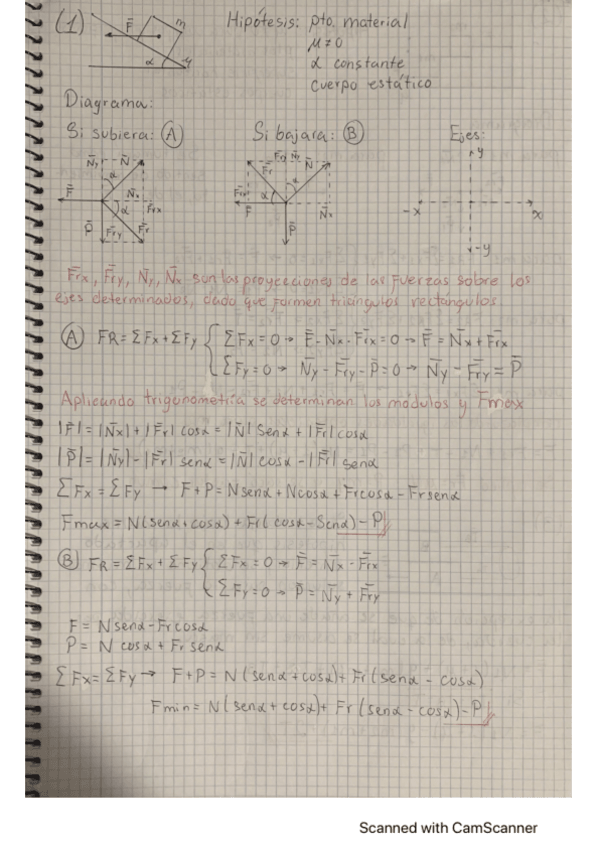 (1) F̄ m α μ
Hipótesis: pto. material
μ≠0
α constante
cuerpo estático
Diagrama:
Si subiera: Ⓐ Si bajara: Ⓑ Ejes:
N̄y N̄ α F̄ N̄x α F̄rx P̄ F̄ry F̄r
F̄ry N̄y N̄ F̄r α F̄rx α F̄ N̄x P̄
y -x x -y
F̄rx, F̄ry, N̄y, N̄x son las proyecciones de las fuerzas sobre los
ejes determinados, dado que formen triángulos rectángulos.
Ⓐ FR = ΣFx + ΣFy { ΣFx = 0 → F̄ - N̄x - F̄rx = 0 → F̄ = N̄x + F̄rx
ΣFy = 0 → N̄y - F̄ry - P̄ = 0 → N̄y - F̄ry = P̄
Aplicando trigonometría se determinan los módulos y Fmax
|F̄| = |N̄x| + |F̄r| cosα = |N̄| senα + |F̄r| cosα
|P̄| = |N̄y| - |F̄r| senα = |N̄| cosα - |F̄r| senα
ΣFx = ΣFy → F + P = N senα + N cosα + Fr cosα - Fr senα
Fmax = N(senα + cosα) + Fr(cosα - senα) - P
Ⓑ FR = ΣFx + ΣFy { ΣFx = 0 → F̄ = N̄x - F̄rx
ΣFy = 0 → P̄ = N̄y + F̄ry
F = N senα - Fr cosα
P = N cosα + Fr senα
ΣFx = ΣFy → F + P = N(senα + cosα) + Fr(senα - cosα)
Fmin = N(senα + cosα) + Fr(senα - cosα) - P
Scanned with CamScanner